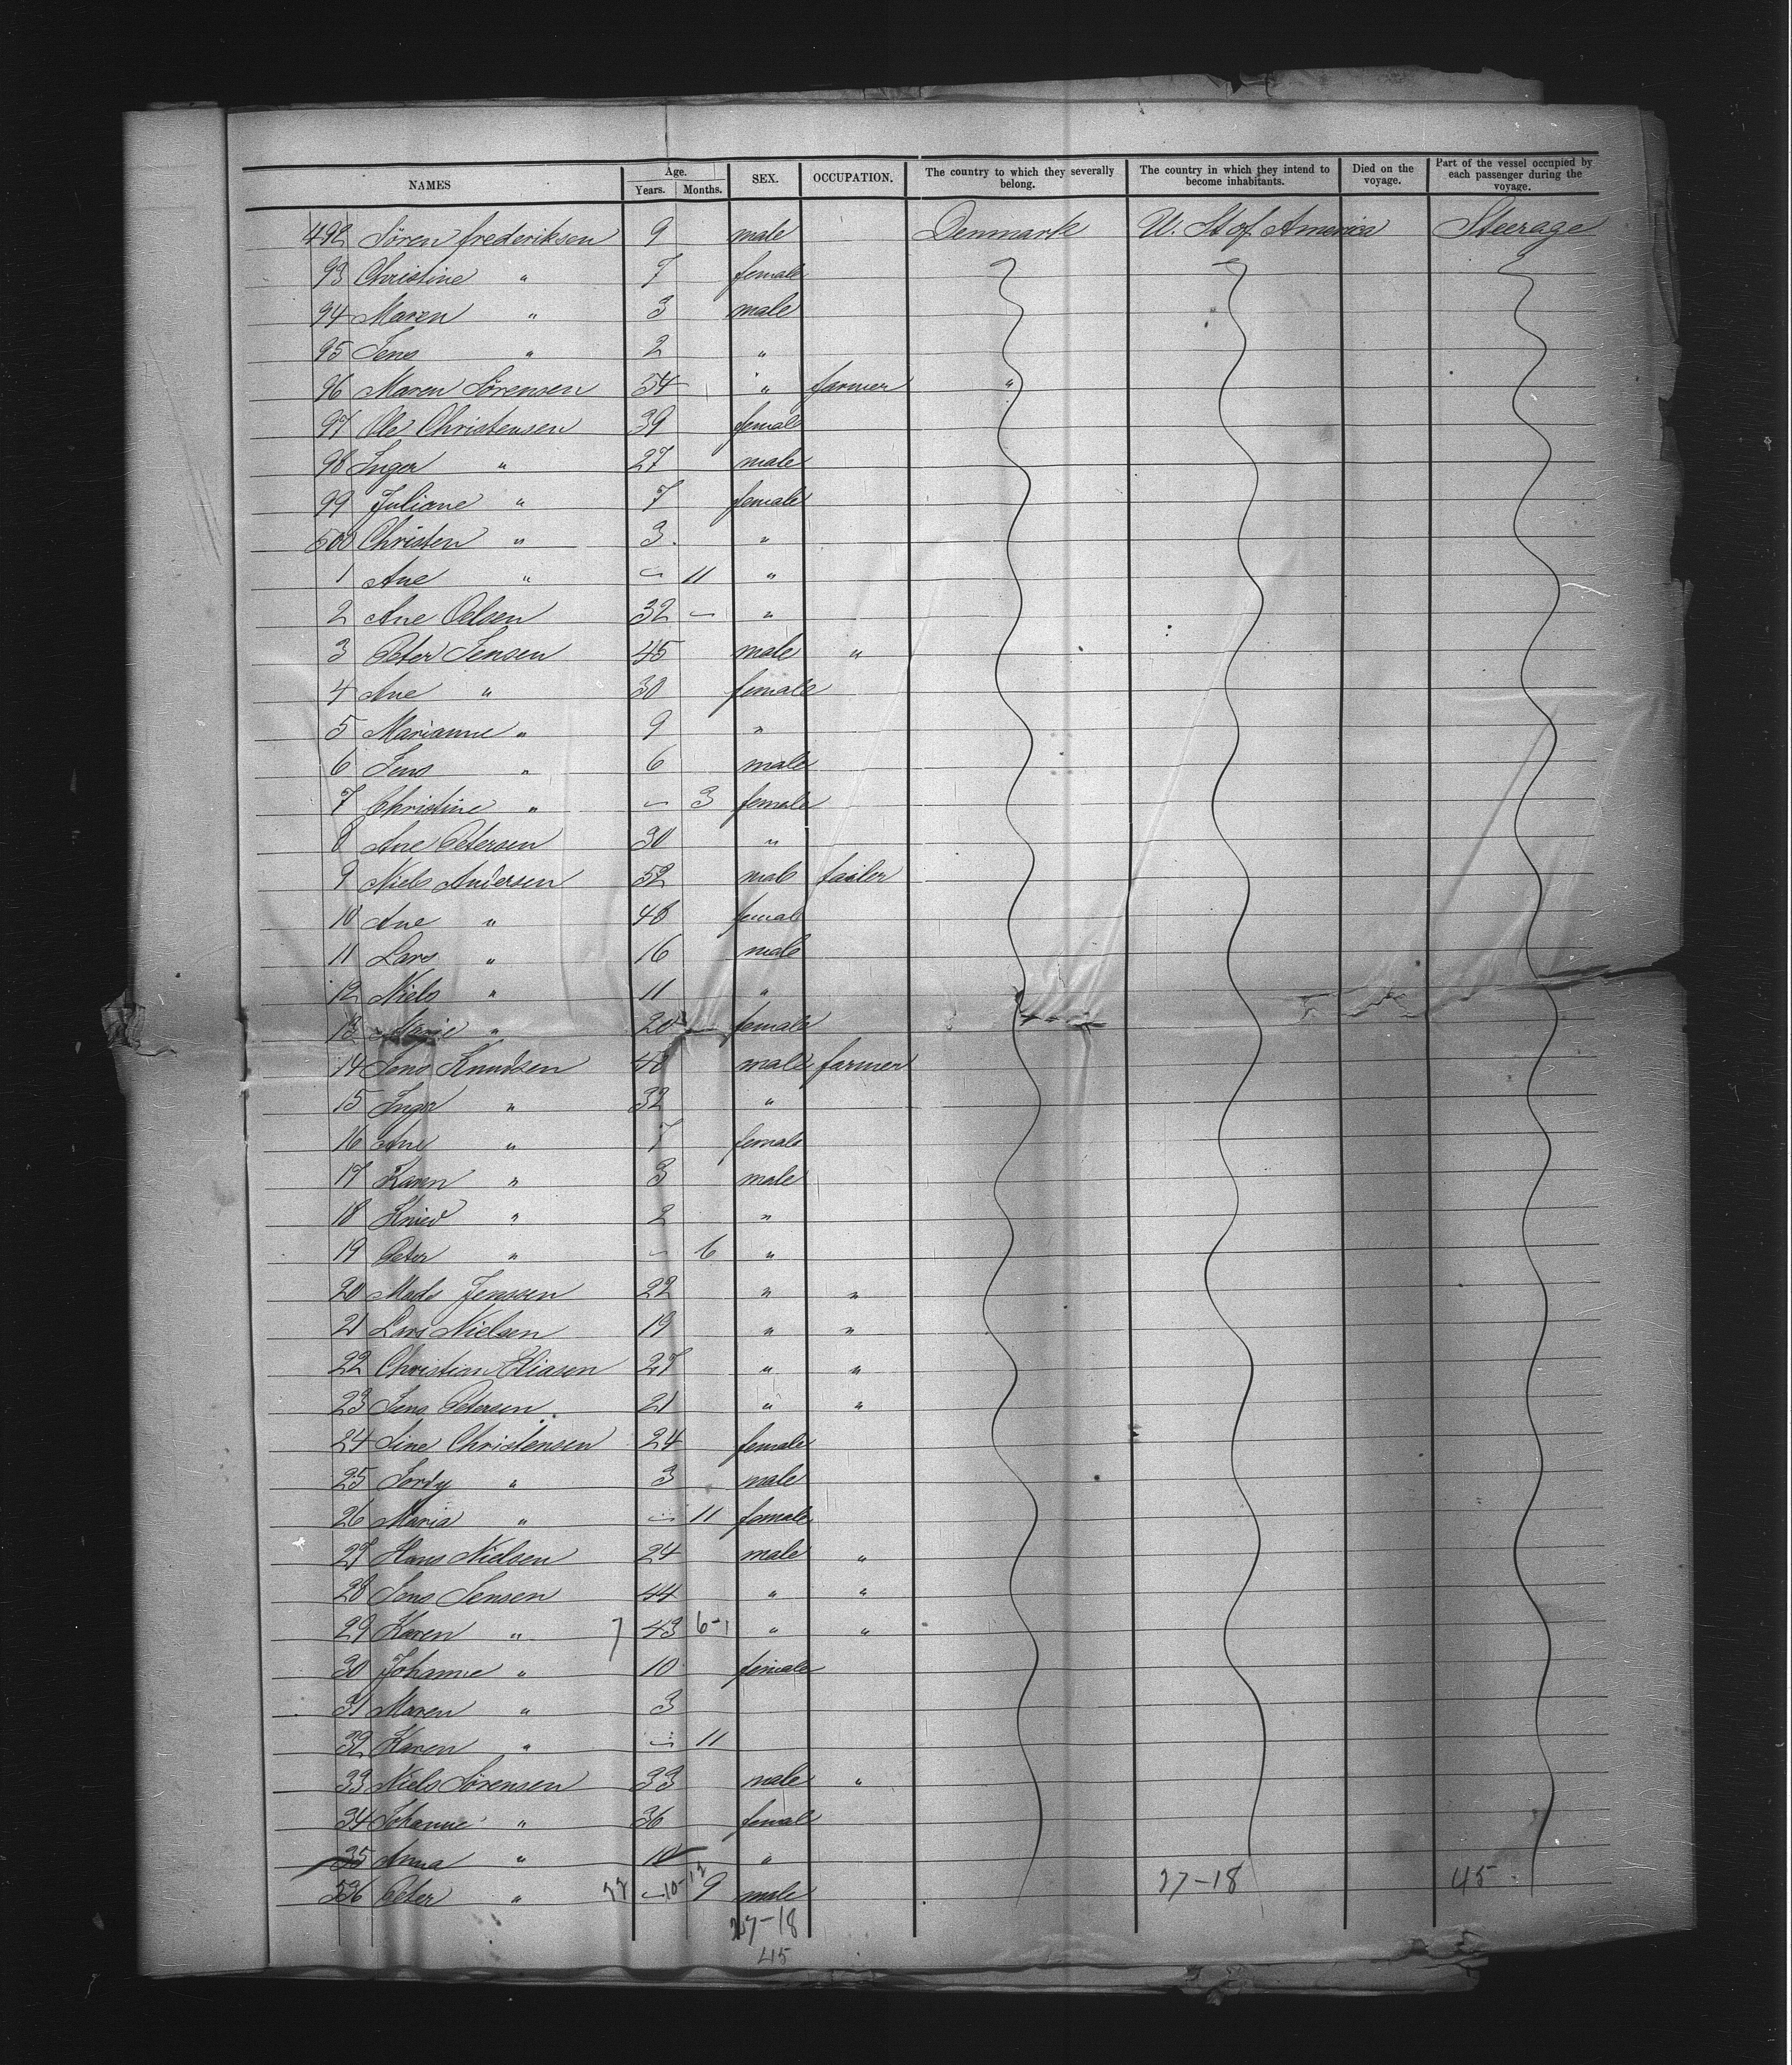 NAMES Age. Years. Months. SEX. OCCUPATION. The country to which they severally belong. The country in which they intend to become inhabitants. Died on the voyage. Part of the vessel occupied by each passenger during the voyage.
492 Sören frederiksen 9 male Denmark U. St of America Steerage
93 Christine " 7 female
94 Maren " 3 male
95 Jens " 2 "
96 Maren Sörensen 54 " farmer "
97 Ole Christensen 39 female
98 Inger " 27 male
99 Juliane " 7 female
500 Christen " 3 "
1 Ane " — 11 "
2 Ane Olsen 32 — "
3 Peter Jensen 45 male "
4 Ane " 30 female
5 Marianne " 9 "
6 Jens " 6 male
7 Christine " — 3 female
8 Ane Petersen 30 "
9 Niels Andersen 52 male tailor
10 Ane " 48 female
11 Lars " 16 male
12 Niels " 11 "
13 Marie " 20 — female
14 Jens Knudsen 48 male farmer
15 Inger " 32 "
16 Ane " 7 female
17 Karen " 3 male
18 Knud " 2 "
19 Peter " — 6 "
20 Mads Jenssen 22 " "
21 Lars Nielsen 19 " "
22 Christian Eliasen 27 " "
23 Jens Petersen 21 " "
24 Sine Christensen 24 female
25 " 3 male
26 Maria " — 11 female
27 Hans Nielsen 24 male "
28 Jens Jensen 44 " "
29 Karen " 7 43 6-1 " "
30 Johanne " 10 female
31 Maren " 3
32 Karen " — 11
33 Niels Sörensen 33 male "
34 Johanne " 36 female
35 Anna " 10 "
536 Peter " — 10-12 9 male 27-18 45
27-18
45